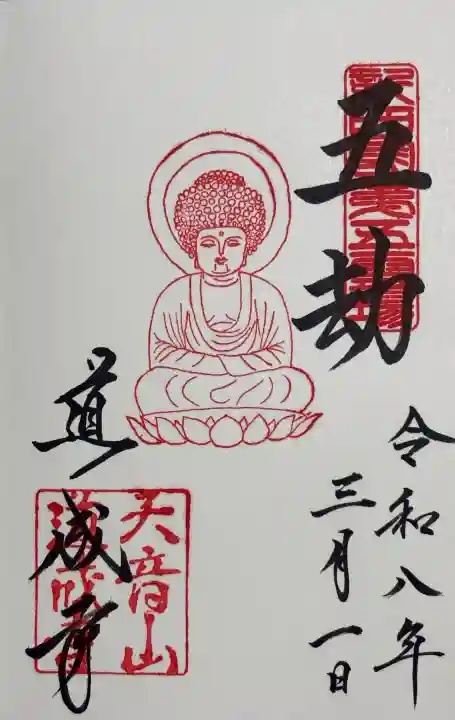 五劫
令和八年
三月一日
道成寺
天音山
道成寺